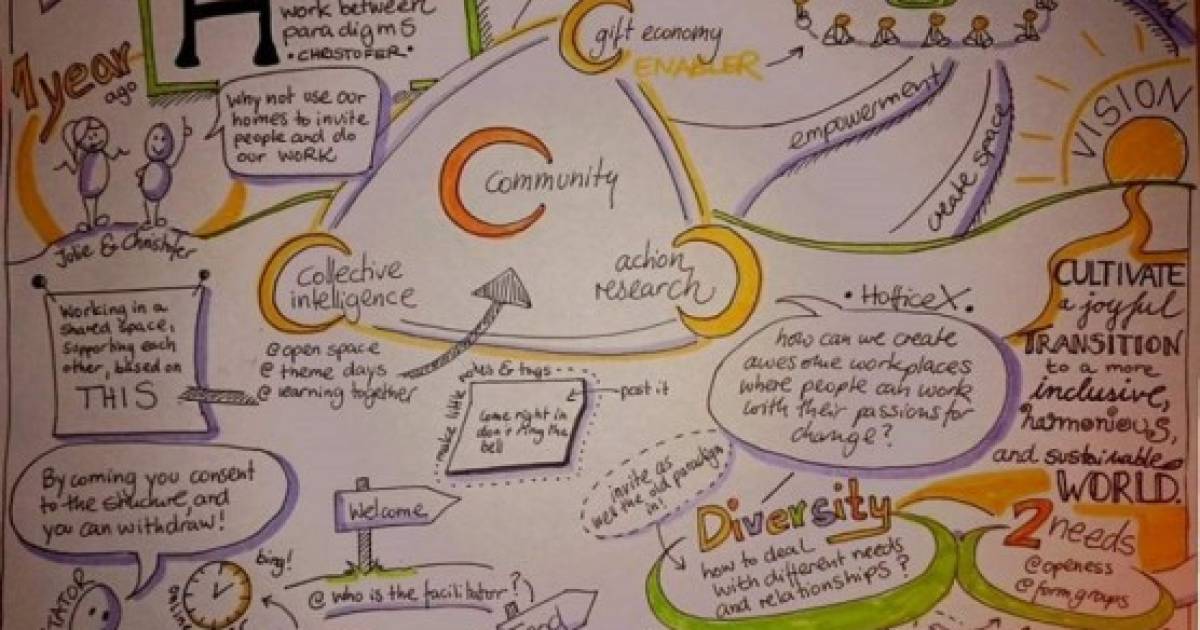 work between
paradigms
• CHRISTOFER •
1 year
ago
Why not use our
homes to invite
people and do
our WORK
Jolie & Christofer
gift economy
ENABLER
empowerment
create space
VISION
Community
collective
intelligence
action
research
Working in a
shared space,
supporting each
other, based on
THIS
@ open space
@ theme days
@ learning together
make little notes & tags
come right in
don't ring the
bell
post it
• Hoffice X.
how can we create
awesome workplaces
where people can work
with their passions for
change?
CULTIVATE
a joyful
TRANSITION
to a more
inclusive,
harmonious,
and sustainable
WORLD.
By coming you consent
to the structure, and
you can withdraw!
Welcome
invite as
well the old paradigm
in!
Diversity
how to deal
with different needs
and relationships?
2 needs
@ openess
@ form groups
bing!
@ who is the facilitator?